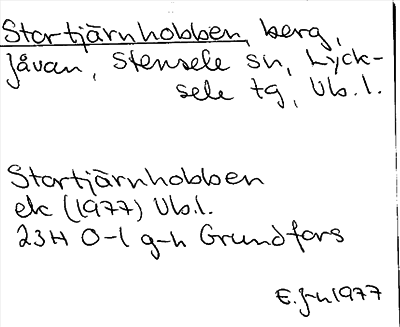 Stortjärnhobben, berg,
Jåvan, Stensele sn, Lyck-
sele tg, Vb.l.
Stortjärnhobben
ek (1977) Vb.l.
23H 0-1 g-h Grundfors
E. Jn 1977